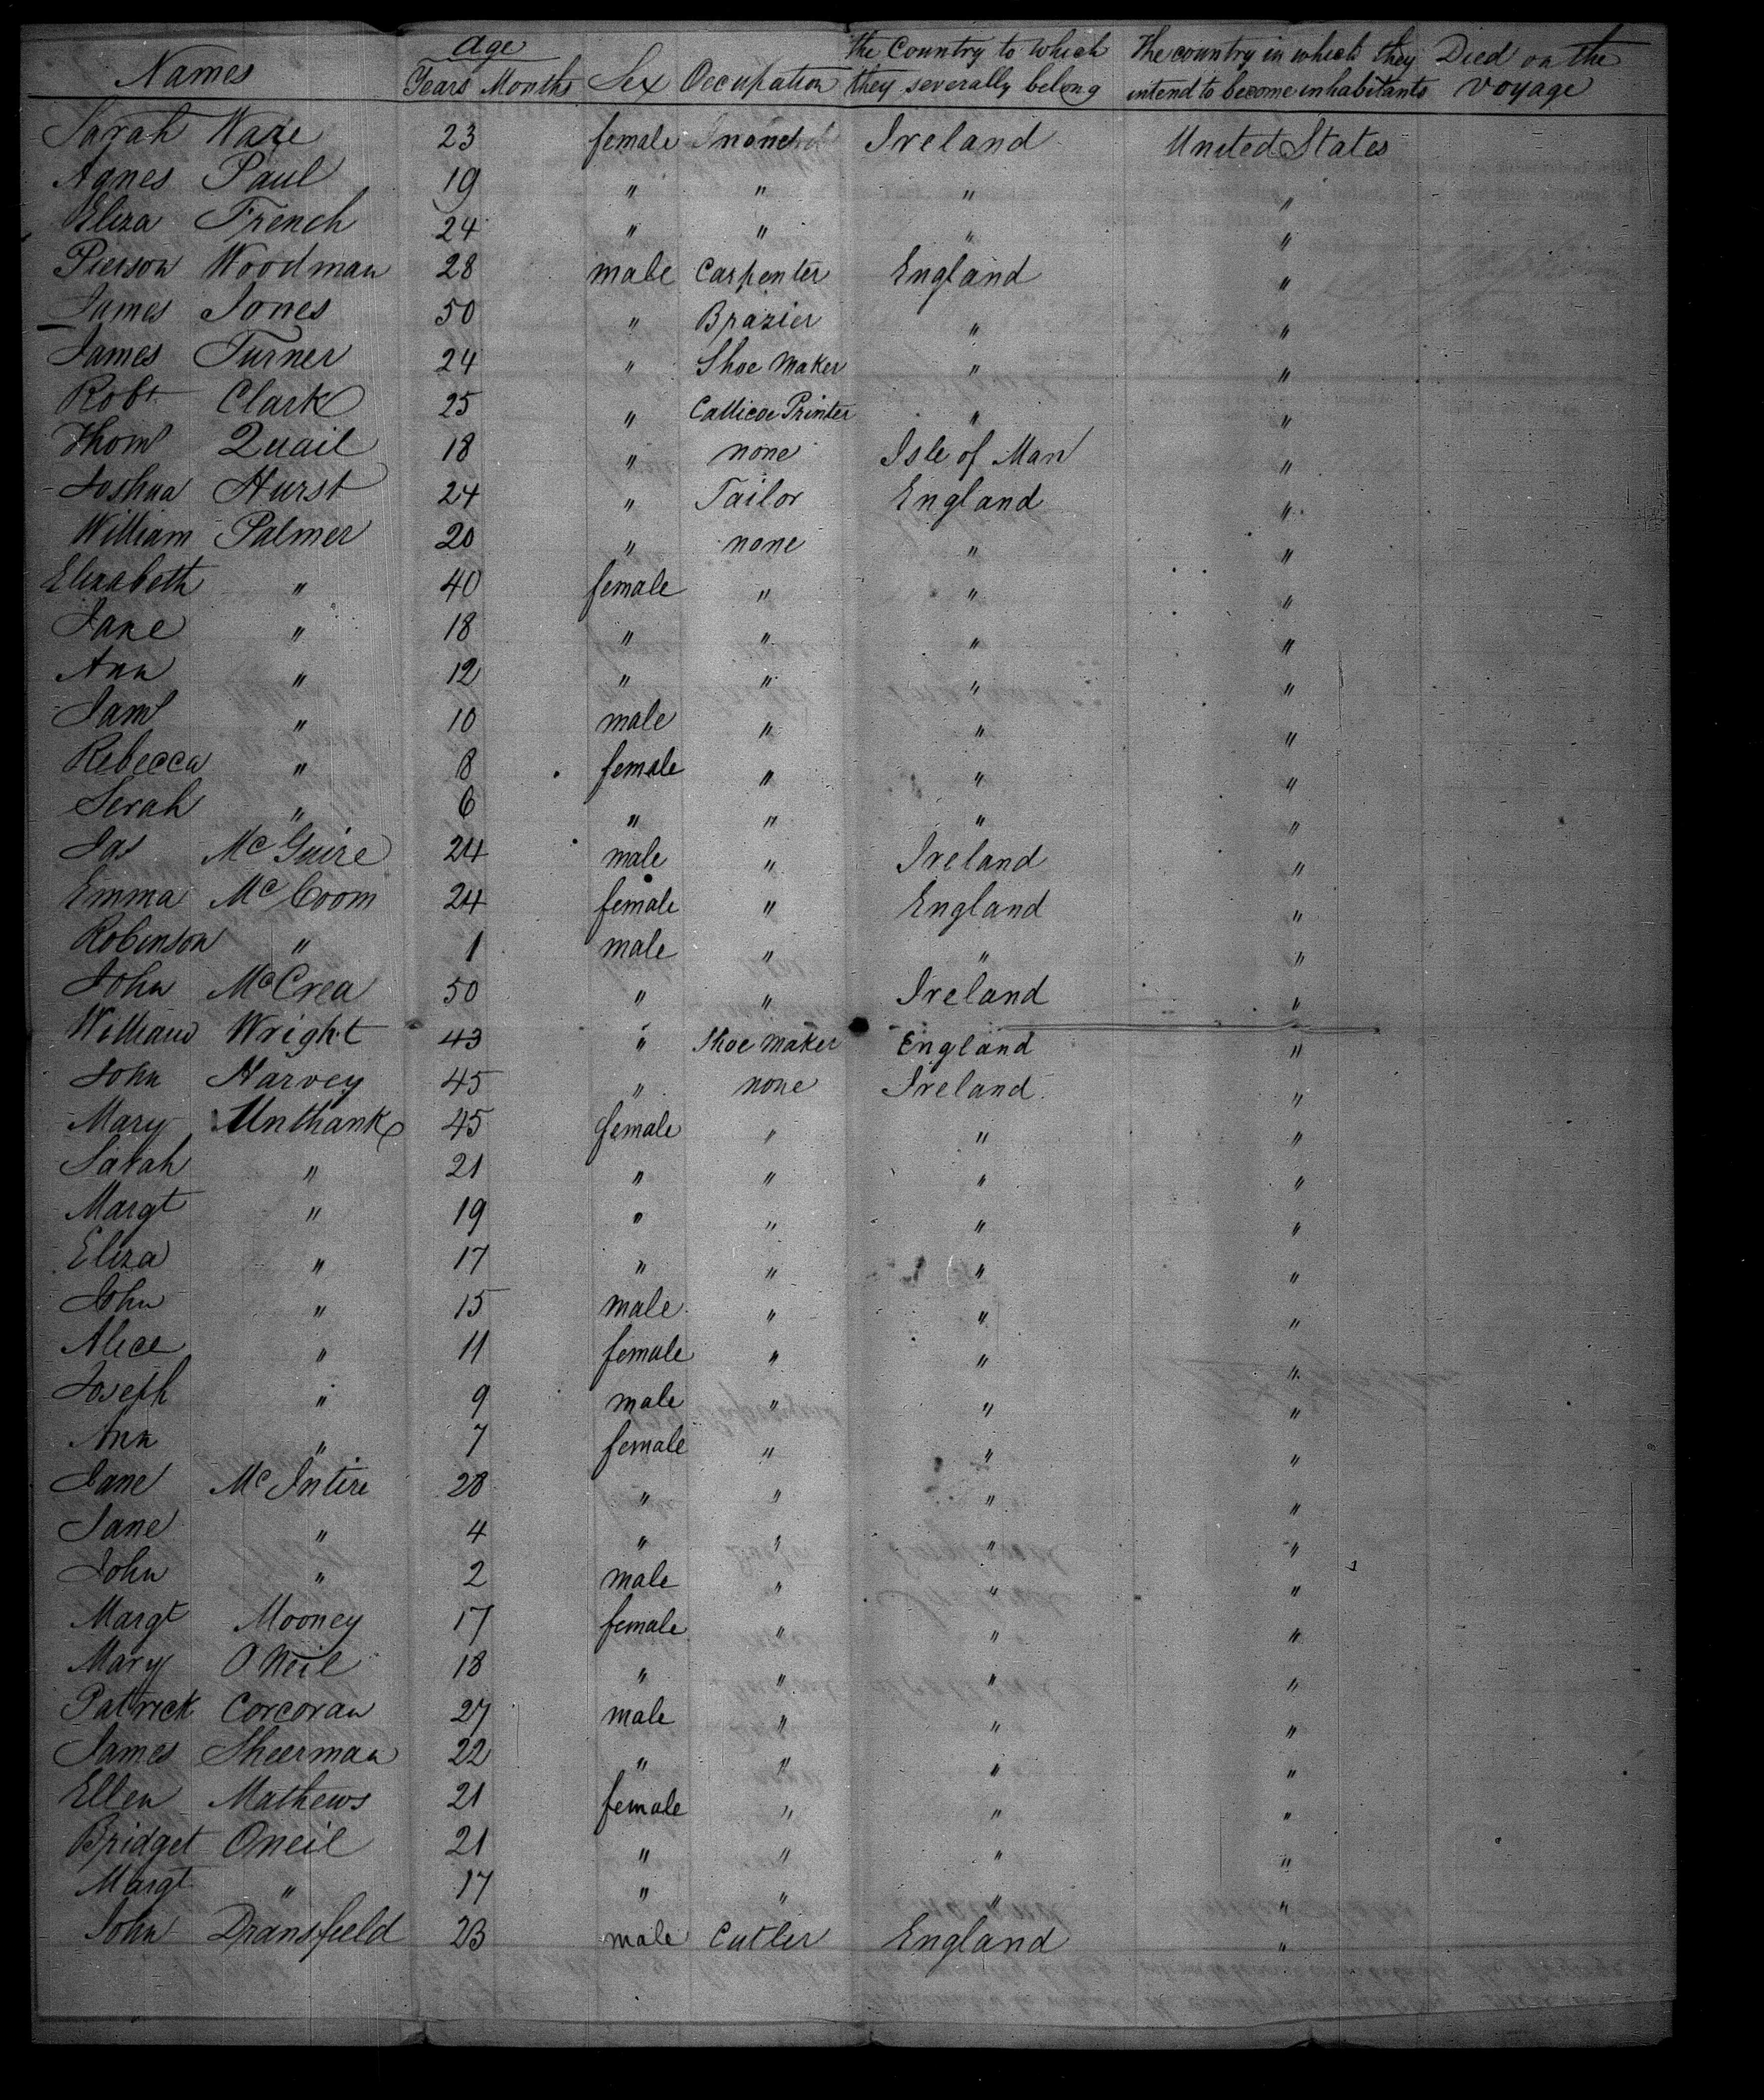 Names Age Years Months Sex Occupation the Country to which they severally belong The country in which they intend to become inhabitants Died on the voyage
Sarah Ware 23 female none Ireland United States
Agnes Paul 19 " " " "
Eliza French 24 " " " "
Pierson Woodman 28 male Carpenter England "
James Jones 50 " Brazier " "
James Turner 24 " Shoe Maker " "
Robt Clark 25 " Callicoe Printer " "
Thoms Quail 18 " none Isle of Man "
Joshua Hurst 24 " Tailor England "
William Palmer 20 " none " "
Elizabeth " 40 female " " "
Jane " 18 " " " "
Ann " 12 " " " "
Saml " 10 male " " "
Rebecca " 8 female " " "
Serah " 6 " " " "
Jas McGuire 24 male " Ireland "
Emma McCoom 24 female " England "
Robinson " 1 male " " "
John McCrea 50 " " Ireland "
William Wright 43 " Shoe maker England "
John Harvey 45 " none Ireland "
Mary Unthank 45 female " " "
Sarah " 21 " " " "
Margt " 19 " " " "
Eliza " 17 " " " "
John " 15 male " " "
Alice " 11 female " " "
Joseph " 9 male " " "
Ann " 7 female " " "
Jane McIntire 28 " " " "
Jane " 4 " " " "
John " 2 male " " "
Margt Mooney 17 female " " "
Mary ONeil 18 " " " "
Patrick Corcoran 27 male " " "
James Sheerman 22 " " " "
Ellen Mathews 21 female " " "
Bridget Oneil 21 " " " "
Margt " 17 " " " "
John Dransfield 23 male Cutler England "